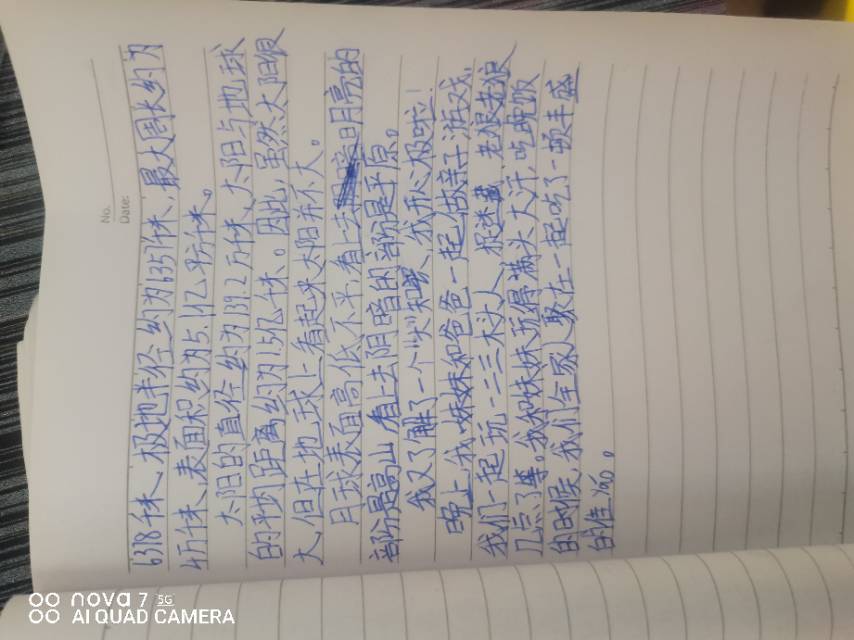 No.
Date:
6378千米、极地半径约为6357千米、最大周长约为
4万千米、表面积约为5.1亿平方千米。
太阳的直径约为139.2万千米、太阳与地球
的平均距离约为1.5亿千米。因此,虽然太阳很
大但在地球上看起来太阳并不大。
月球表面高低不平,看上去明亮的
部份是高山看上去阴暗的部份是平原。
我又了解了一个知识、我开心极啦!
晚上我妹妹和爸爸一起做亲子游戏,
我们一起玩一二三木头人、捉迷藏、老狼老狼
几点了等。我和妹妹玩得满头大汗,吃晚饭
的时候,我们全家人聚在一起吃了一顿丰盛
的佳。
nova 7 5G
AI QUAD CAMERA